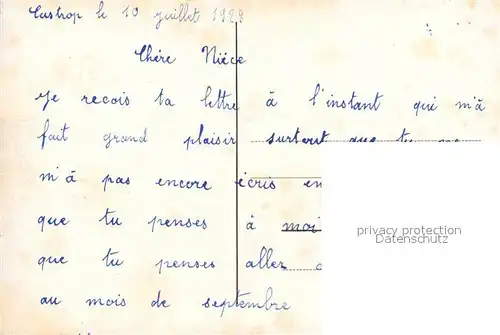 Castrop le 10 juillet 1929
Chère Nièce
Je recois ta lettre à l'instant qui m'à
fait grand plaisir surtout que tu
m'à pas encore écris en
que tu penses à moi
que tu penses aller
au mois de septembre
privacy protection
Datenschutz